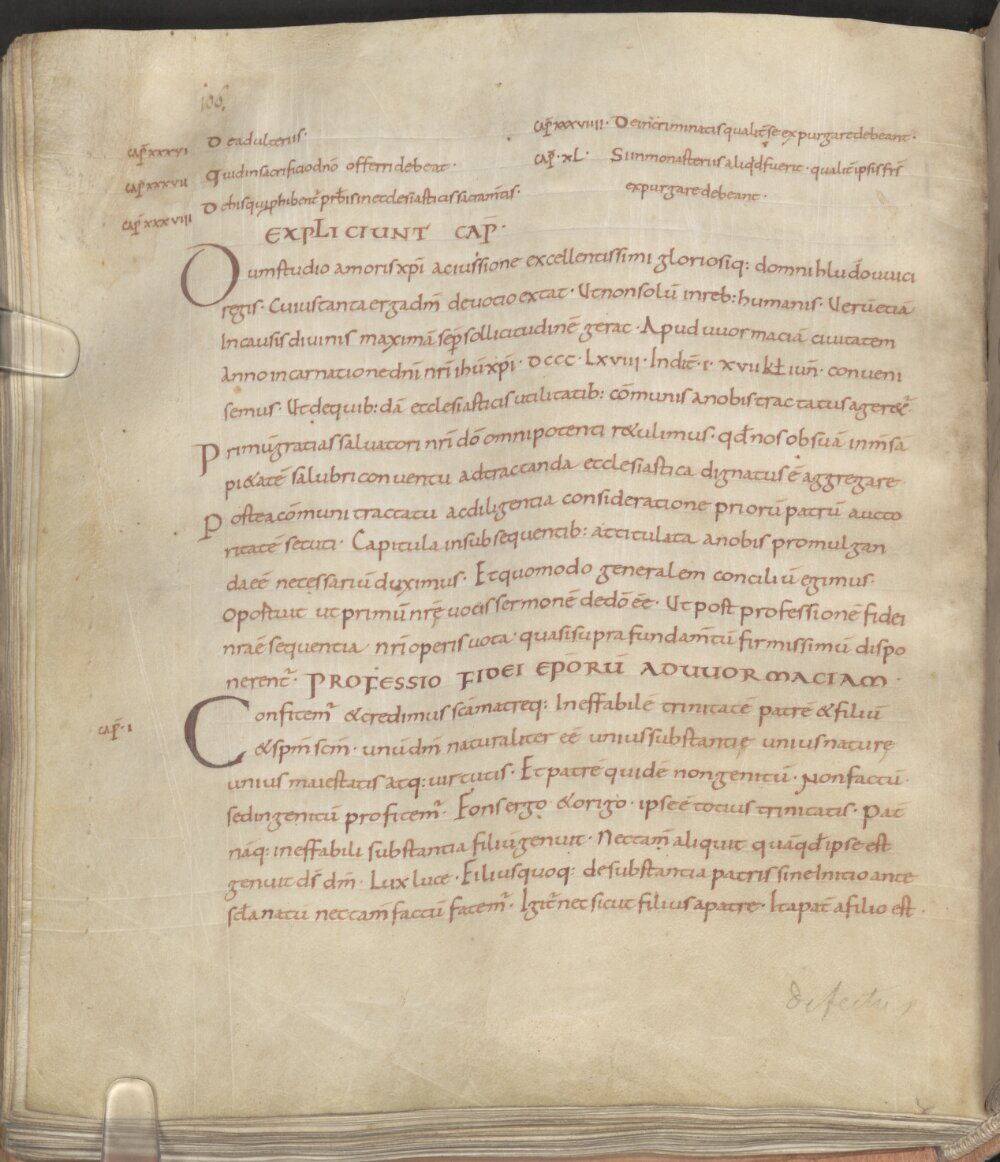 106.
CAP̄ XXXVI De adulteriis.
CAP̄ XXXVII Quid in sacrificio dnō offerri debeat.
CAP̄ XXXVIII De his qui phibent̄ prb̄is in ecclesiasticis sacram̄tis.
CAP̄ XXXVIIII. De incriminatis qualit̄ se expurgare debeant.
CAP̄. XL. Si in monasteriis aliqd̄ fuerit. qualit̄ ipsi fr̄s
expurgare debeant.
EXPLICIUNT CAP̄.
Cum studio amoris xp̄i ac iussione excellentissimi gloriosiq: domni hludouuici
regis. Cuius tanta erga dm̄ deuotio extat. Ut non solū in reb: humanis. Uerū etiā
In causis diuinis maximā sep̄ sollicitudinē gerat. Apud uuormaciā ciuitatem
Anno incarnatione dn̄i nr̄i ihū xp̄i. DCCC. LXVIII. Indic̄. I. XVII kł iuñ. conueni
semus. Ut de quib:dā ecclesiasticis utilitatib: cōmunis a nobis tractatus ageret̄
Primū gratias saluatori nr̄i dō omnipotenti retulimus. qd̄ nos ob suā inm̄sā
pietatē salubri conuentu ad tractanda ecclesiastica dignatus ē aggregare
Postea cōmuni tractatu ac diligentia consideratione priorū patrū aucto
ritatē secuti. Capitula in subsequentib: attitulata a nobis promulgan
da eē necessariū duximus. Et quomodo generalem conciliū egimus.
Oportuit ut primū nrę̄ uocis sermonē de dō eē. Ut post professionē fidei
nrāe sequentia nr̄i operis uota quasi supra fundam̄tū firmissimū dispo
nerent̄. PROFESSIO FIDEI EP̄ORŪ AD UUORMACIAM.
CAP̄. I
Confitem̄ et credimus scām atreq: Ineffabilē trinitatē patrē & filiū
& spm̄ scm̄. unū dm̄ naturaliter eē unius substantię unius naturę
unius maiestatis atq: uirtutis. Et patrē quidē non genitū. Non factū.
sed ingenitū profitem̄. Fons ergo & origo. ipse ē totius trinitatis. Pat̄
nāq: ineffabili substantia filiū genuit. Nec tam̄ aliquit quā qd̄ ipse est
genuit ds̄ dm̄. Lux luce. Filius quoq: de substantia patris sine Initio ante
scl̄a natū nec tam̄ factū fatem̄. Igit̄ nec sicut filius a patre. Ita pat̄ a filio est.